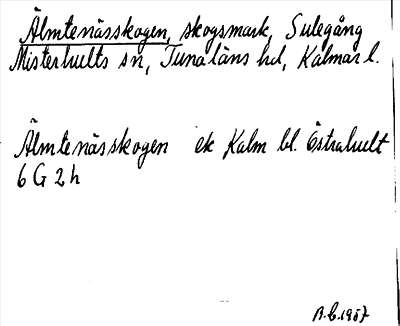 Älmtenässkogen, skogsmark, Sulegång
Misterhults sn, Tunaläns hd, Kalmar l.
Älmtenässkogen ek Kalm bl. Östrahult
6 G 2 h
A.C. 1957